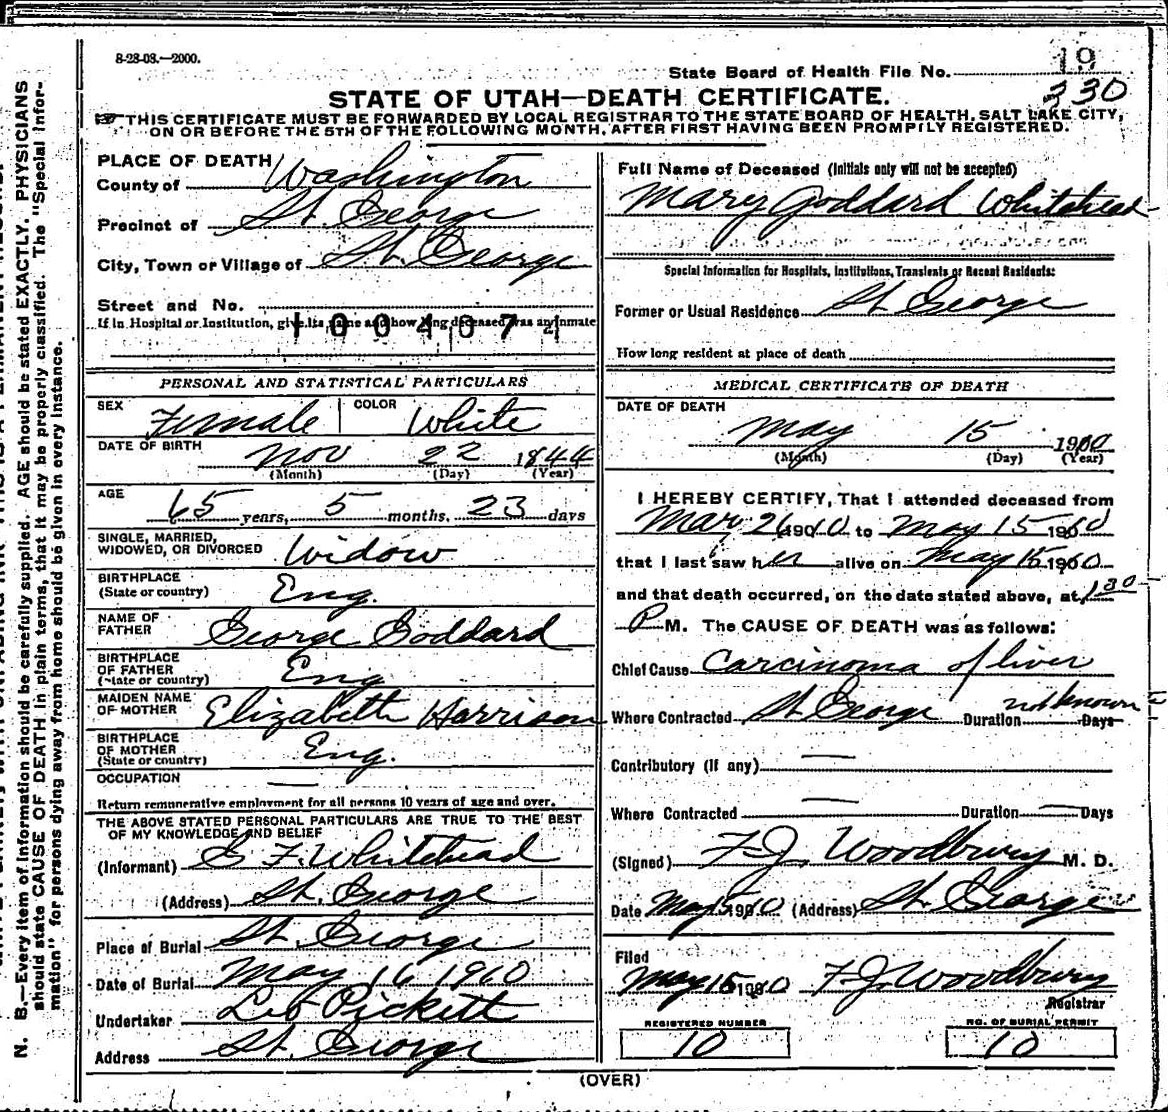 8-28-08.—2000.
19
State Board of Health File No.
330
STATE OF UTAH—DEATH CERTIFICATE.
THIS CERTIFICATE MUST BE FORWARDED BY LOCAL REGISTRAR TO THE STATE BOARD OF HEALTH, SALT LAKE CITY,
ON OR BEFORE THE 5TH OF THE FOLLOWING MONTH, AFTER FIRST HAVING BEEN PROMPTLY REGISTERED.
PLACE OF DEATH
County of Washington
Precinct of St. George
City, Town or Village of St. George
Street and No.
If in Hospital or Institution, give its name and how long deceased was an inmate
1004071
PERSONAL AND STATISTICAL PARTICULARS
SEX Female COLOR White
DATE OF BIRTH Nov 22 1844
(Month) (Day) (Year)
AGE
65 years, 5 months, 23 days
SINGLE, MARRIED,
WIDOWED, OR DIVORCED Widow
BIRTHPLACE
(State or country) Eng.
NAME OF
FATHER George Goddard
BIRTHPLACE
OF FATHER
(State or country) Eng
MAIDEN NAME
OF MOTHER Elizabeth Harrison
BIRTHPLACE
OF MOTHER
(State or country) Eng.
OCCUPATION —
Return remunerative employment for all persons 10 years of age and over.
THE ABOVE STATED PERSONAL PARTICULARS ARE TRUE TO THE BEST
OF MY KNOWLEDGE AND BELIEF
(Informant) G F. Whitehead
(Address) St. George
Place of Burial St. George
Date of Burial May 16 1910
Undertaker Leo Pickett
Address St. George
Full Name of Deceased (Initials only will not be accepted)
Mary Goddard Whitehead
Special Information for Hospitals, Institutions, Transients or Recent Residents:
Former or Usual Residence St George
How long resident at place of death
MEDICAL CERTIFICATE OF DEATH
DATE OF DEATH
May 15 1910
(Month) (Day) (Year)
I HEREBY CERTIFY, That I attended deceased from
Mar 26 1910 to May 15 1910
that I last saw her alive on May 15 1910
and that death occurred, on the date stated above, at 1 30
P M. The CAUSE OF DEATH was as follows:
Chief Cause Carcinoma of liver
Where Contracted St George Duration not known Days
Contributory (if any) —
Where Contracted — Duration — Days
(Signed) F. J. Woodbury M. D.
Date May 15 1910 (Address) St. George
Filed
May 15 1910 F. J. Woodbury
Registrar
REGISTERED NUMBER
10
NO. OF BURIAL PERMIT
10
(OVER)
N. B.—Every item of information should be carefully supplied. AGE should be stated EXACTLY. PHYSICIANS
should state CAUSE OF DEATH in plain terms, that it may be properly classified. The "Special Infor-
mation" for persons dying away from home should be given in every instance.